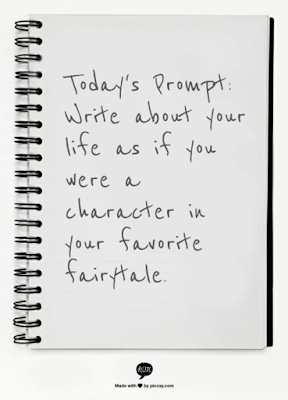 Today's Prompt:
Write about your
life as if you
were a
character in
your favorite
fairytale.
Made with ♥ by piccsy.com